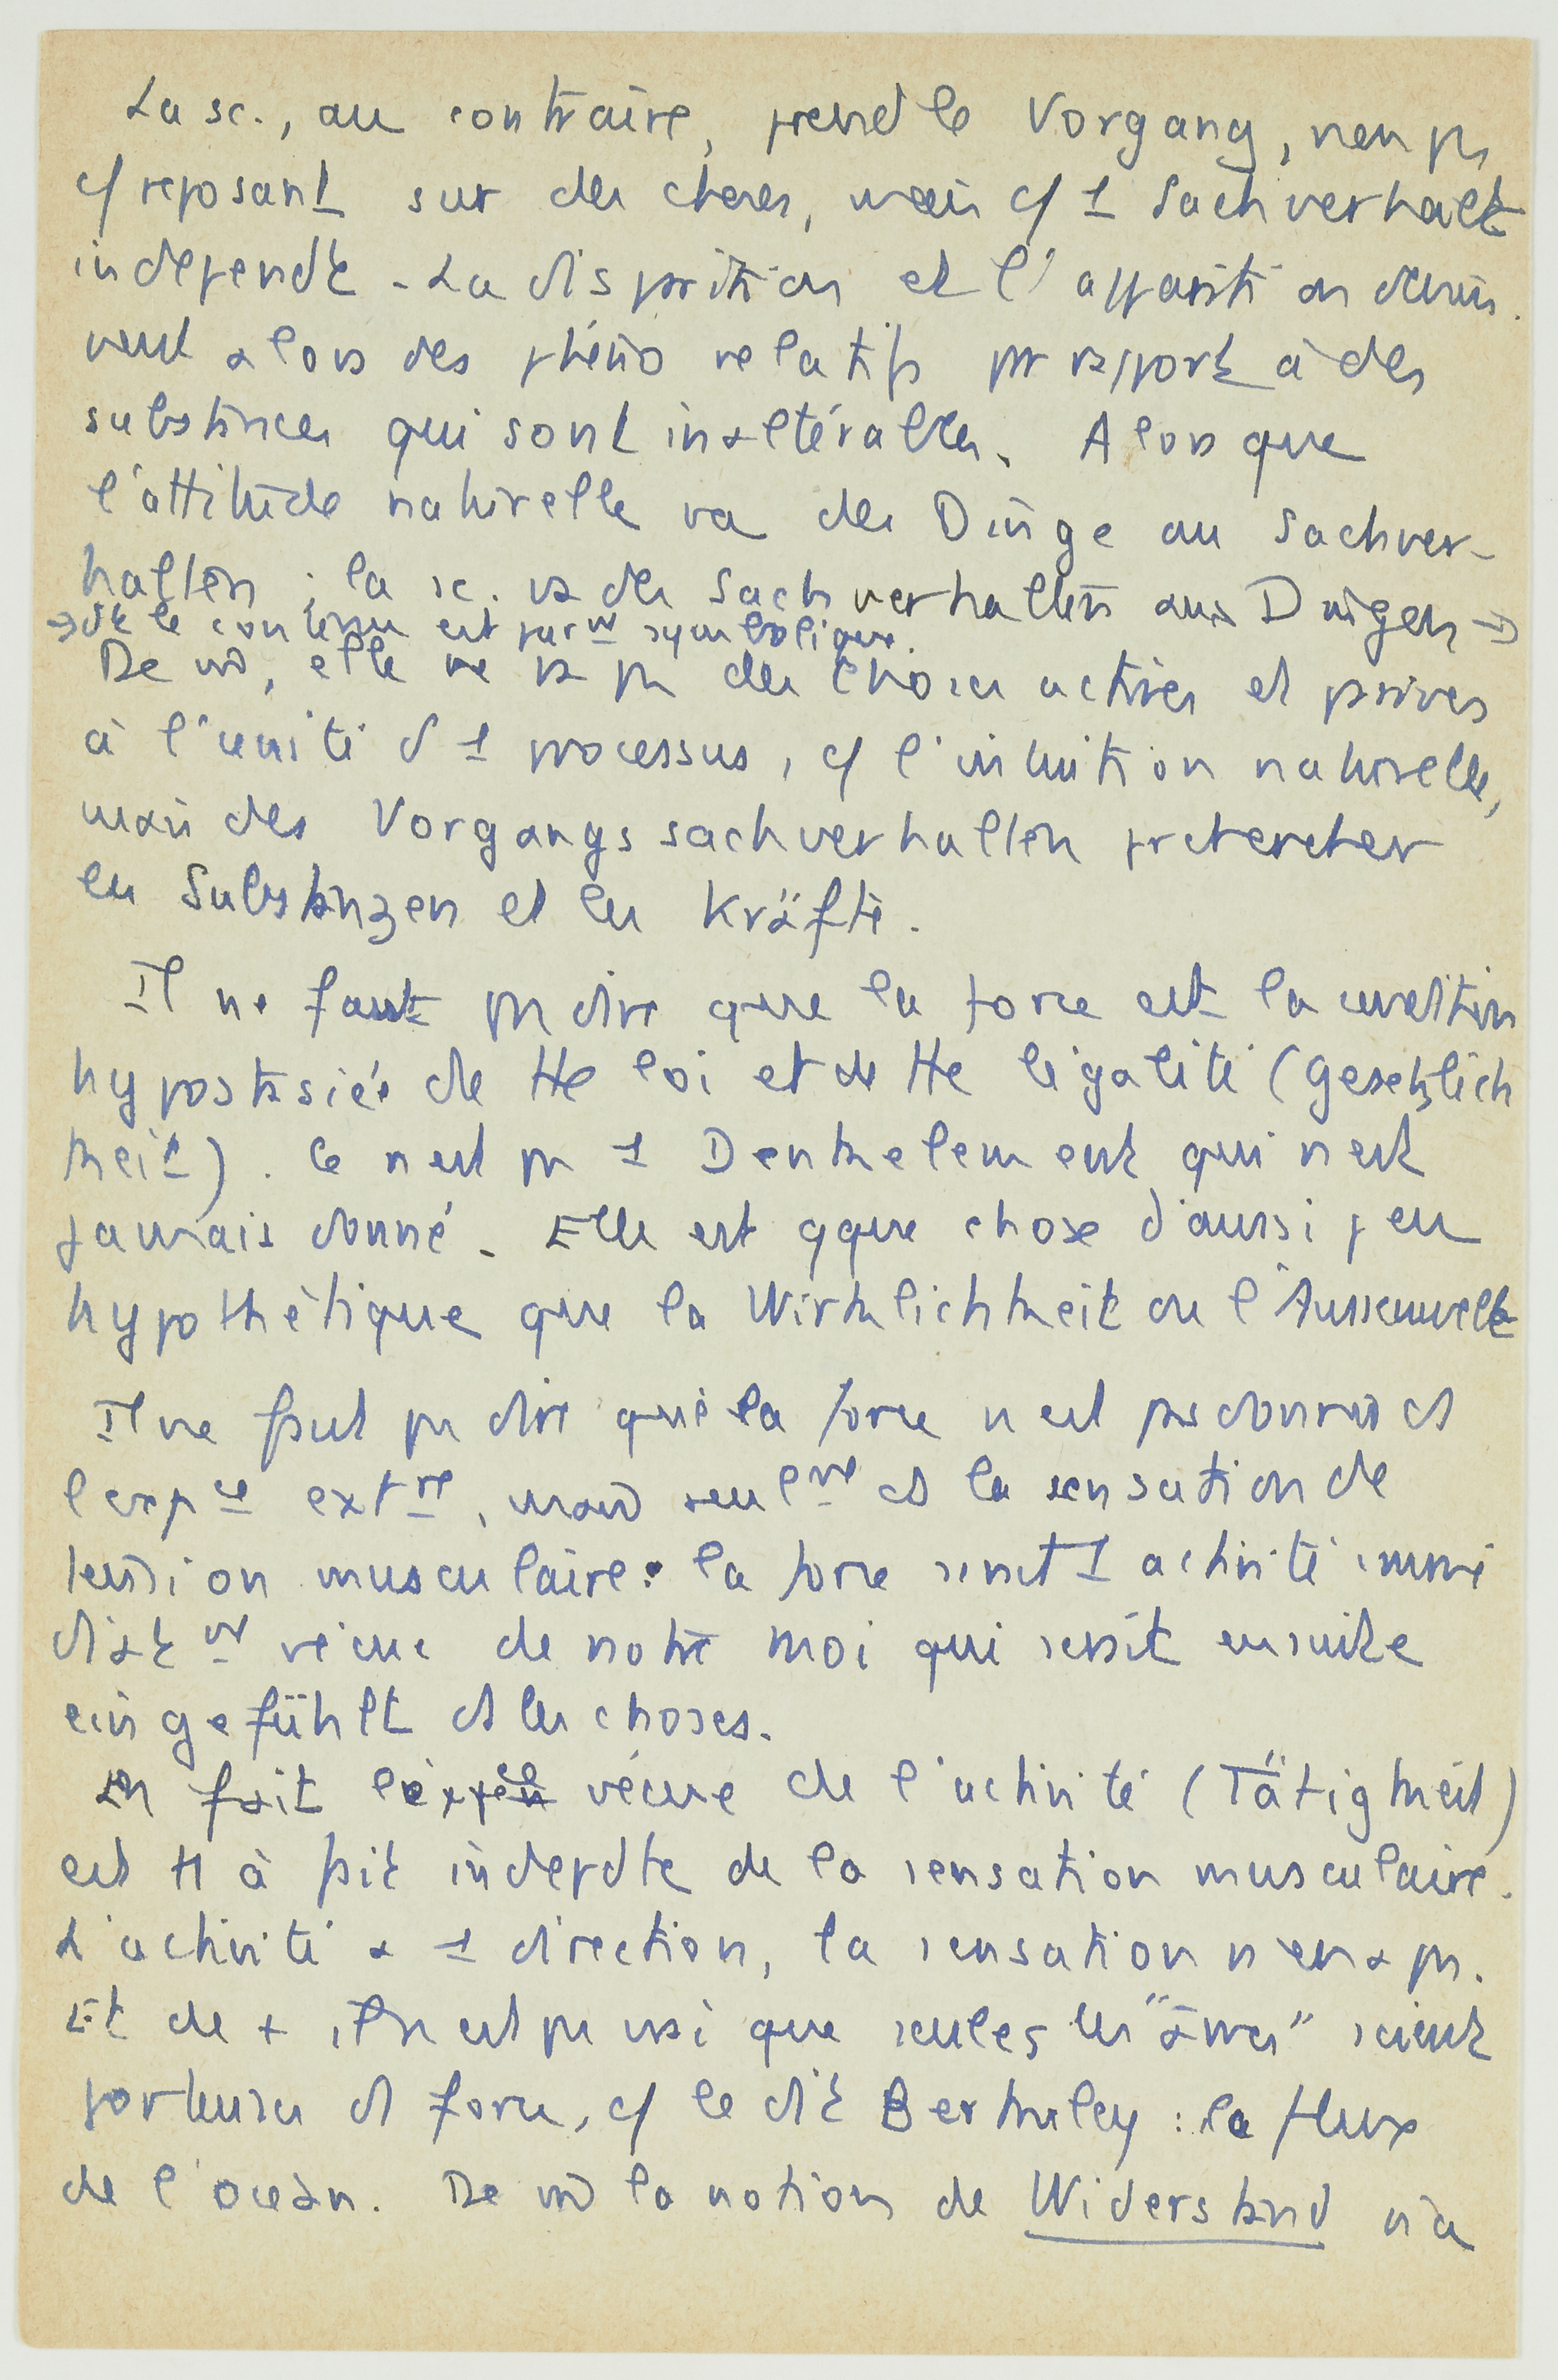 La sc., au contraire, prend le Vorgang, non ps
c/ reposant sur des choses, mais c/ 1 Sachverhalt
independt. La disparition et l'apparition devien-
nent alors des phéno relatifs pr rapport à des
substances qui sont inaltérables. Alors que
l'attitude naturelle va des Dinge au Sachver-
halten, la sc. va des Sachverhalten aux Dingen →
→ dt le contenu est purmt symbolique.
De m̄, elle ne va ps des choses actives et passives
à l'unité d 1 processus, c/ l'intuition naturelle,
mais des Vorgangssachverhalten chercher
les Substanzen et les Kräfte.
Il ne faut ps dire que la force est la condition
hypostasiée de tte loi et de tte légalité (Gesetzlich
keit). Ce n'est ps 1 Denkelement qui n'est
jamais donné. Elle est qque chose d'aussi peu
hypothétique que la Wirklichkeit de l'Aussenwelt
Il ne faut ps dire que la force n'est pas donnée ds
l'expce extre, mais seulmt ds la sensation de
tension musculaire : la force serait 1 activité immé
diatmt vécue de notre moi qui serait ensuite
eingefühlt ds les choses.
En fait l'expce vécue de l'activité (Tätigkeit)
est tt à fait indepdte de la sensation musculaire.
L'activité a 1 direction, la sensation n'en a ps.
Et de + il n'est ps vrai que seules les "âmes" soient
porteuses d force, c/ le dit Berkeley : le flux
de l'océan. De m̄ la notion de Widerstand n'a